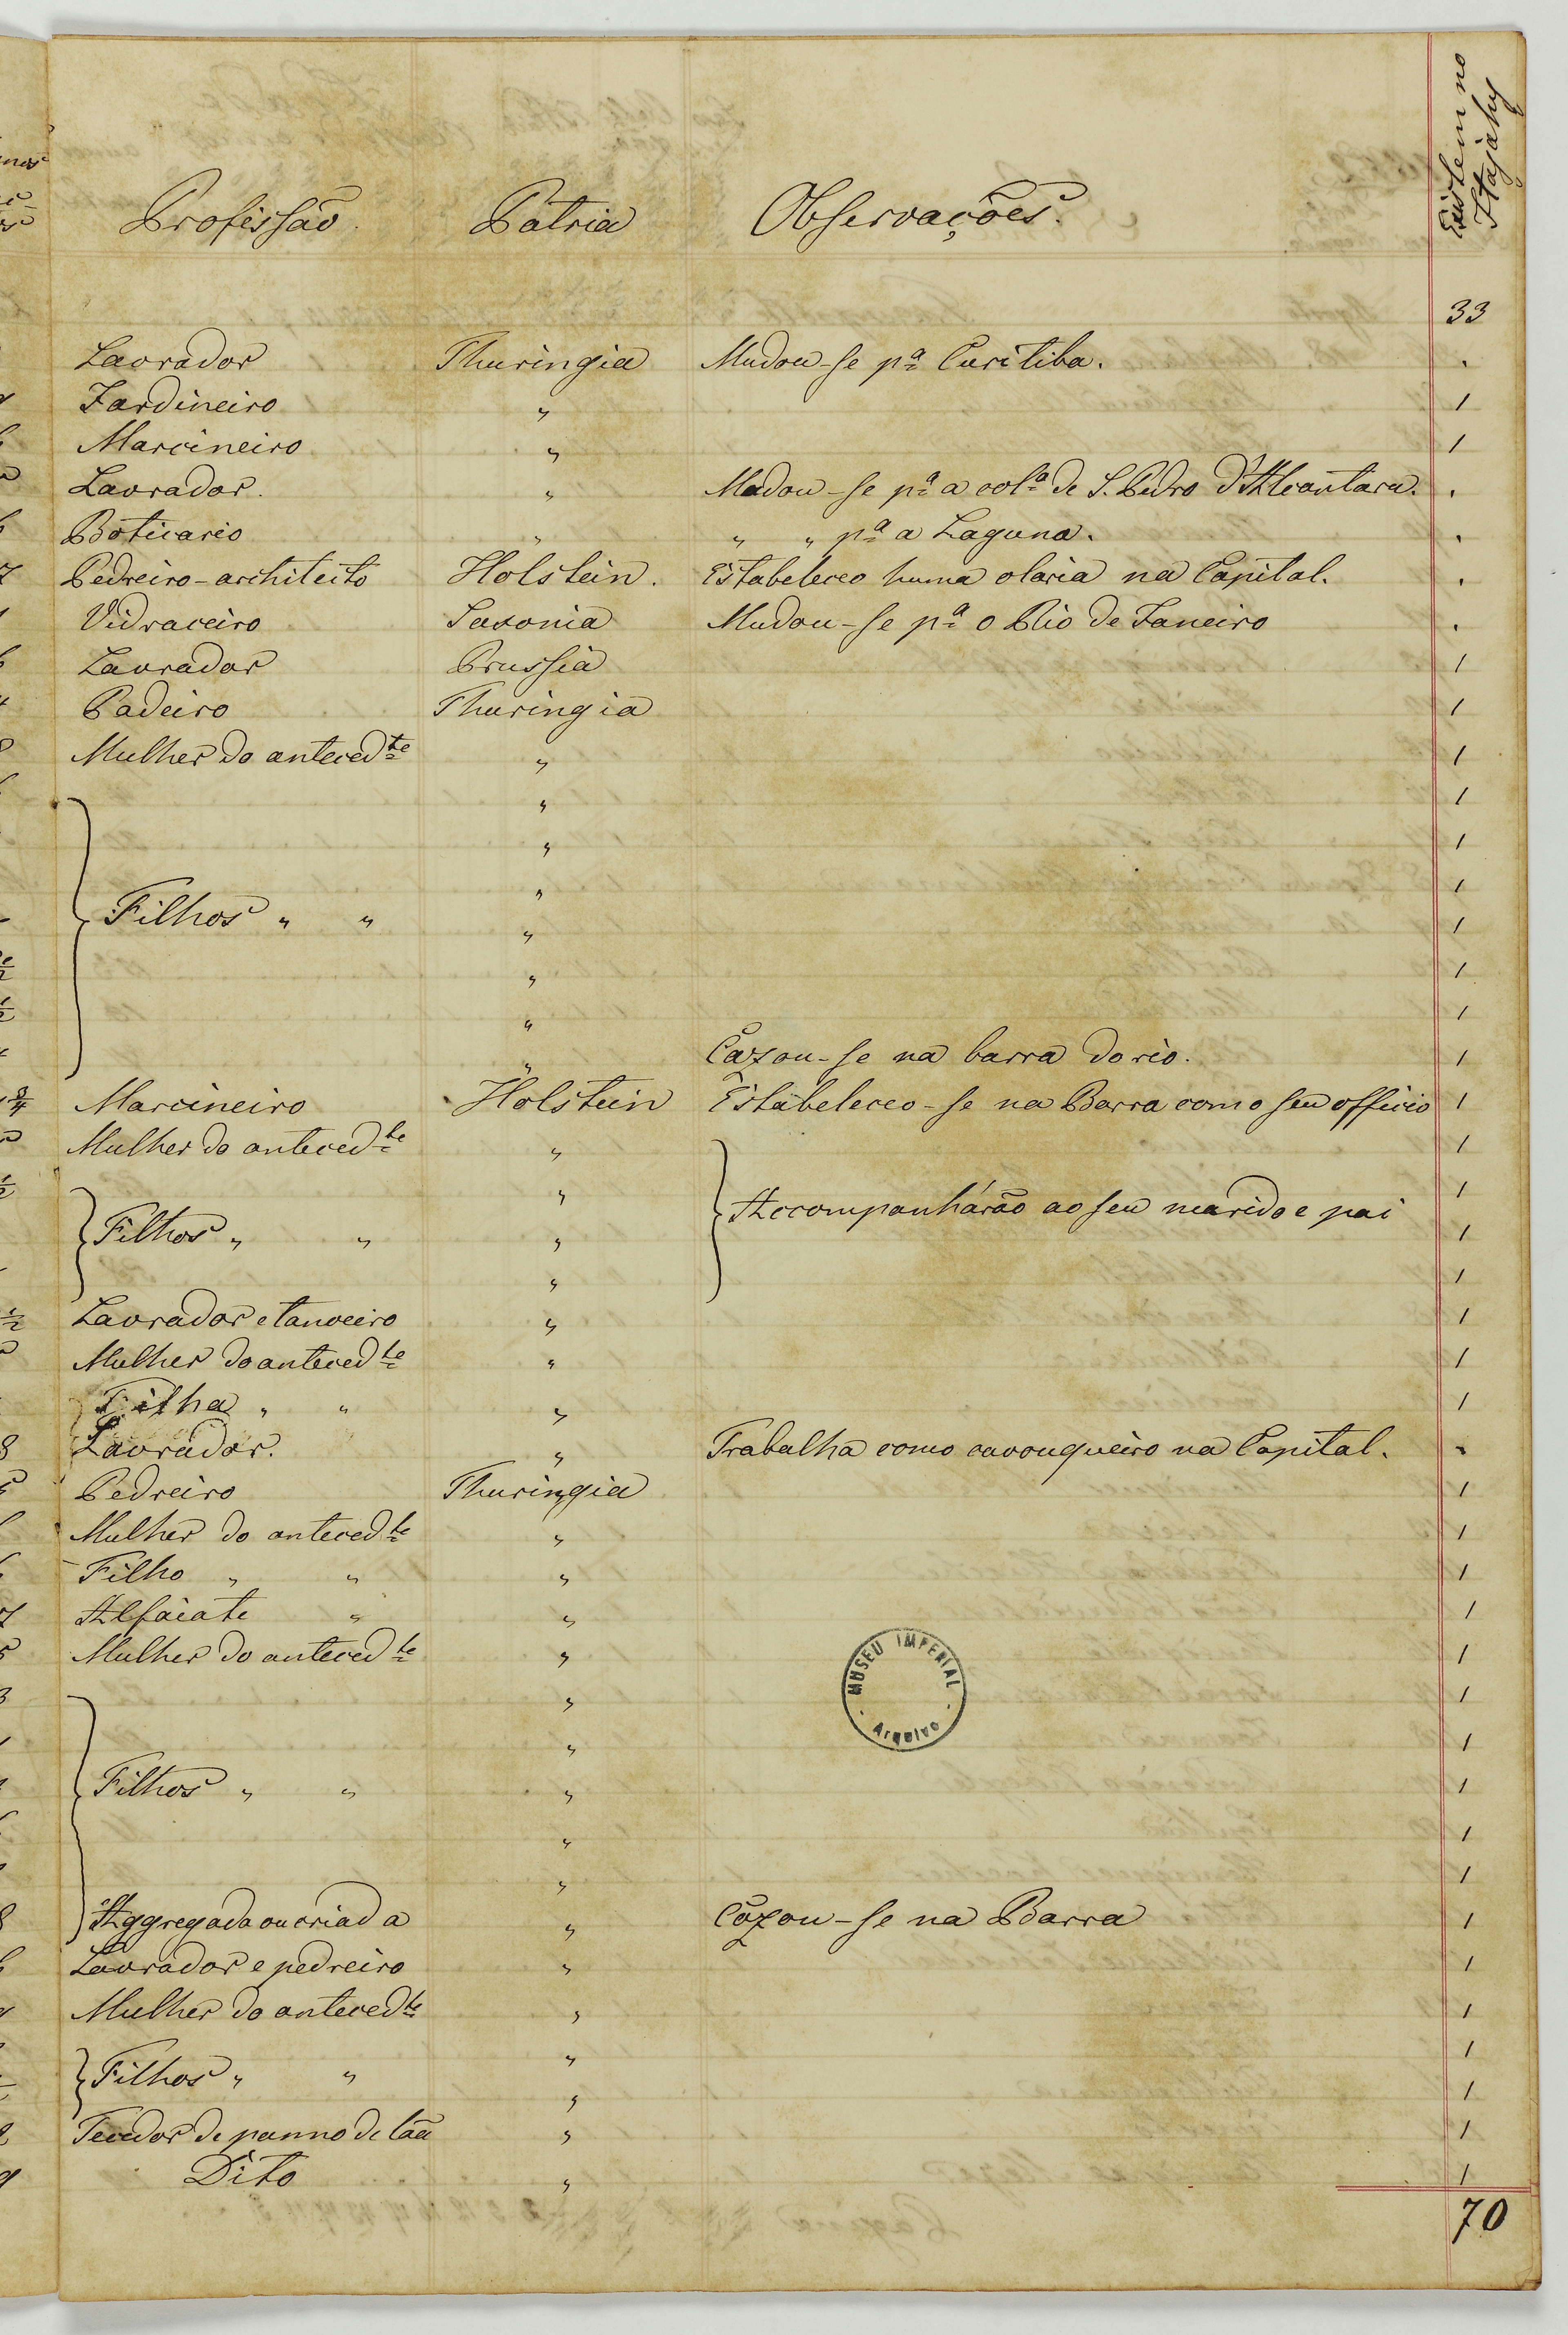 Profissão Patria Observações. Existem no Itajahy
33
Lavrador Thuringia Mudou-se pª Curitiba. .
Jardineiro " 1
Marcineiro " 1
Lavrador. " Mudou-se pª a colª de S. Pedro d'Alcantara. .
Boticario " " " pª a Laguna. .
Pedreiro-architeito Holstein. Estabeleceo huma olaria na Capital. .
Vidraceiro Saxonia Mudou-se pª o Rio de Janeiro .
Lavrador Prussia 1
Padeiro Thuringia 1
Mulher do antecedte " 1
" 1
" 1
" 1
Filhos " " " 1
" 1
" 1
" Cazou-se na barra do rio. 1
Marcineiro Holstein Estabeleceo-se na Barra como seu officio 1
Mulher do antecedte " 1
" 1
Filhos " " " Accompanhárão ao seu marido e pai 1
" 1
Lavrador e tanoeiro " 1
Mulher do antecedte " 1
Filha " " " 1
Lavrador. " Trabalha como cavouqueiro na Capital. .
Pedreiro Thuringia 1
Mulher do antecedte " 1
Filho " " " 1
Alfaiate " " 1
Mulher do antecedte " 1
" 1
" 1
Filhos " " " 1
" 1
" 1
Aggregada ou criada " Cazou-se na Barra 1
Lavrador e pedreiro " 1
Mulher do antecedte " 1
" 1
Filhos " " " 1
Tecedor de panno de lãa " 1
Dito " 1
70
MUSEU IMPERIAL
- Arquivo -